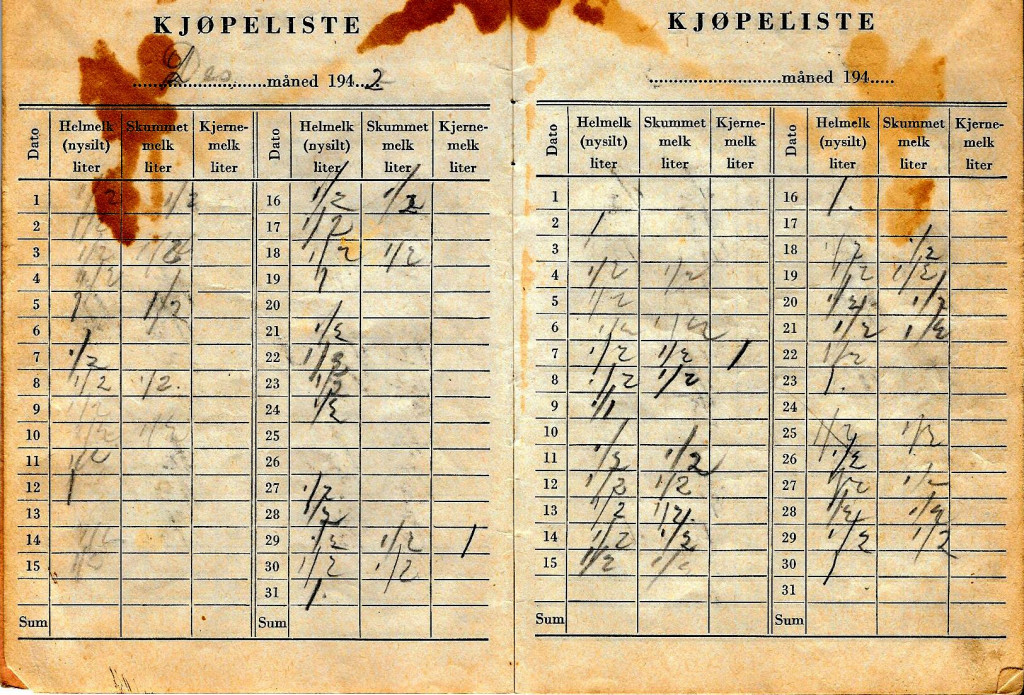 KJØPELISTE
Des. måned 1942
Dato Helmelk (nysilt) liter Skummet melk liter Kjerne-melk liter Dato Helmelk (nysilt) liter Skummet melk liter Kjerne-melk liter
1 1/2 1/2 16 1/2 1/2
2 1/2 17 1/2
3 1/2 1/2 18 1/2 1/2
4 1/2 19 1
5 1 1/2 20
6 21 1/2
7 1/2 22 1/2
8 1/2 1/2 23 1/2
9 1/2 24 1/2
10 1/2 1/2 25
11 1/2 26
12 1 27 1/2
13 28 1/2
14 1/2 29 1/2 1/2 1
15 1/2 30 1/2 1/2
31 1
Sum Sum
KJØPELISTE
måned 194
Dato Helmelk (nysilt) liter Skummet melk liter Kjerne-melk liter Dato Helmelk (nysilt) liter Skummet melk liter Kjerne-melk liter
1 16 1.
2 1 17
3 18 1/2 1/2
4 1/2 1/2 19 1/2 1/2
5 1/2 20 1/2 1/2
6 1/2 1/2 21 1/2 1/2
7 1/2 1/2 1 22 1/2
8 1/2 1/2 23 1.
9 1/1 24
10 25 1/2 1/2
11 1/2 1/2 26 1/2
12 1/2 1/2 27 1/2 1/2
13 1/2 1/2 28 1/2 1/2
14 1/2 1/2 29 1/2 1/2
15 1/2 1/2 30 1
31
Sum Sum